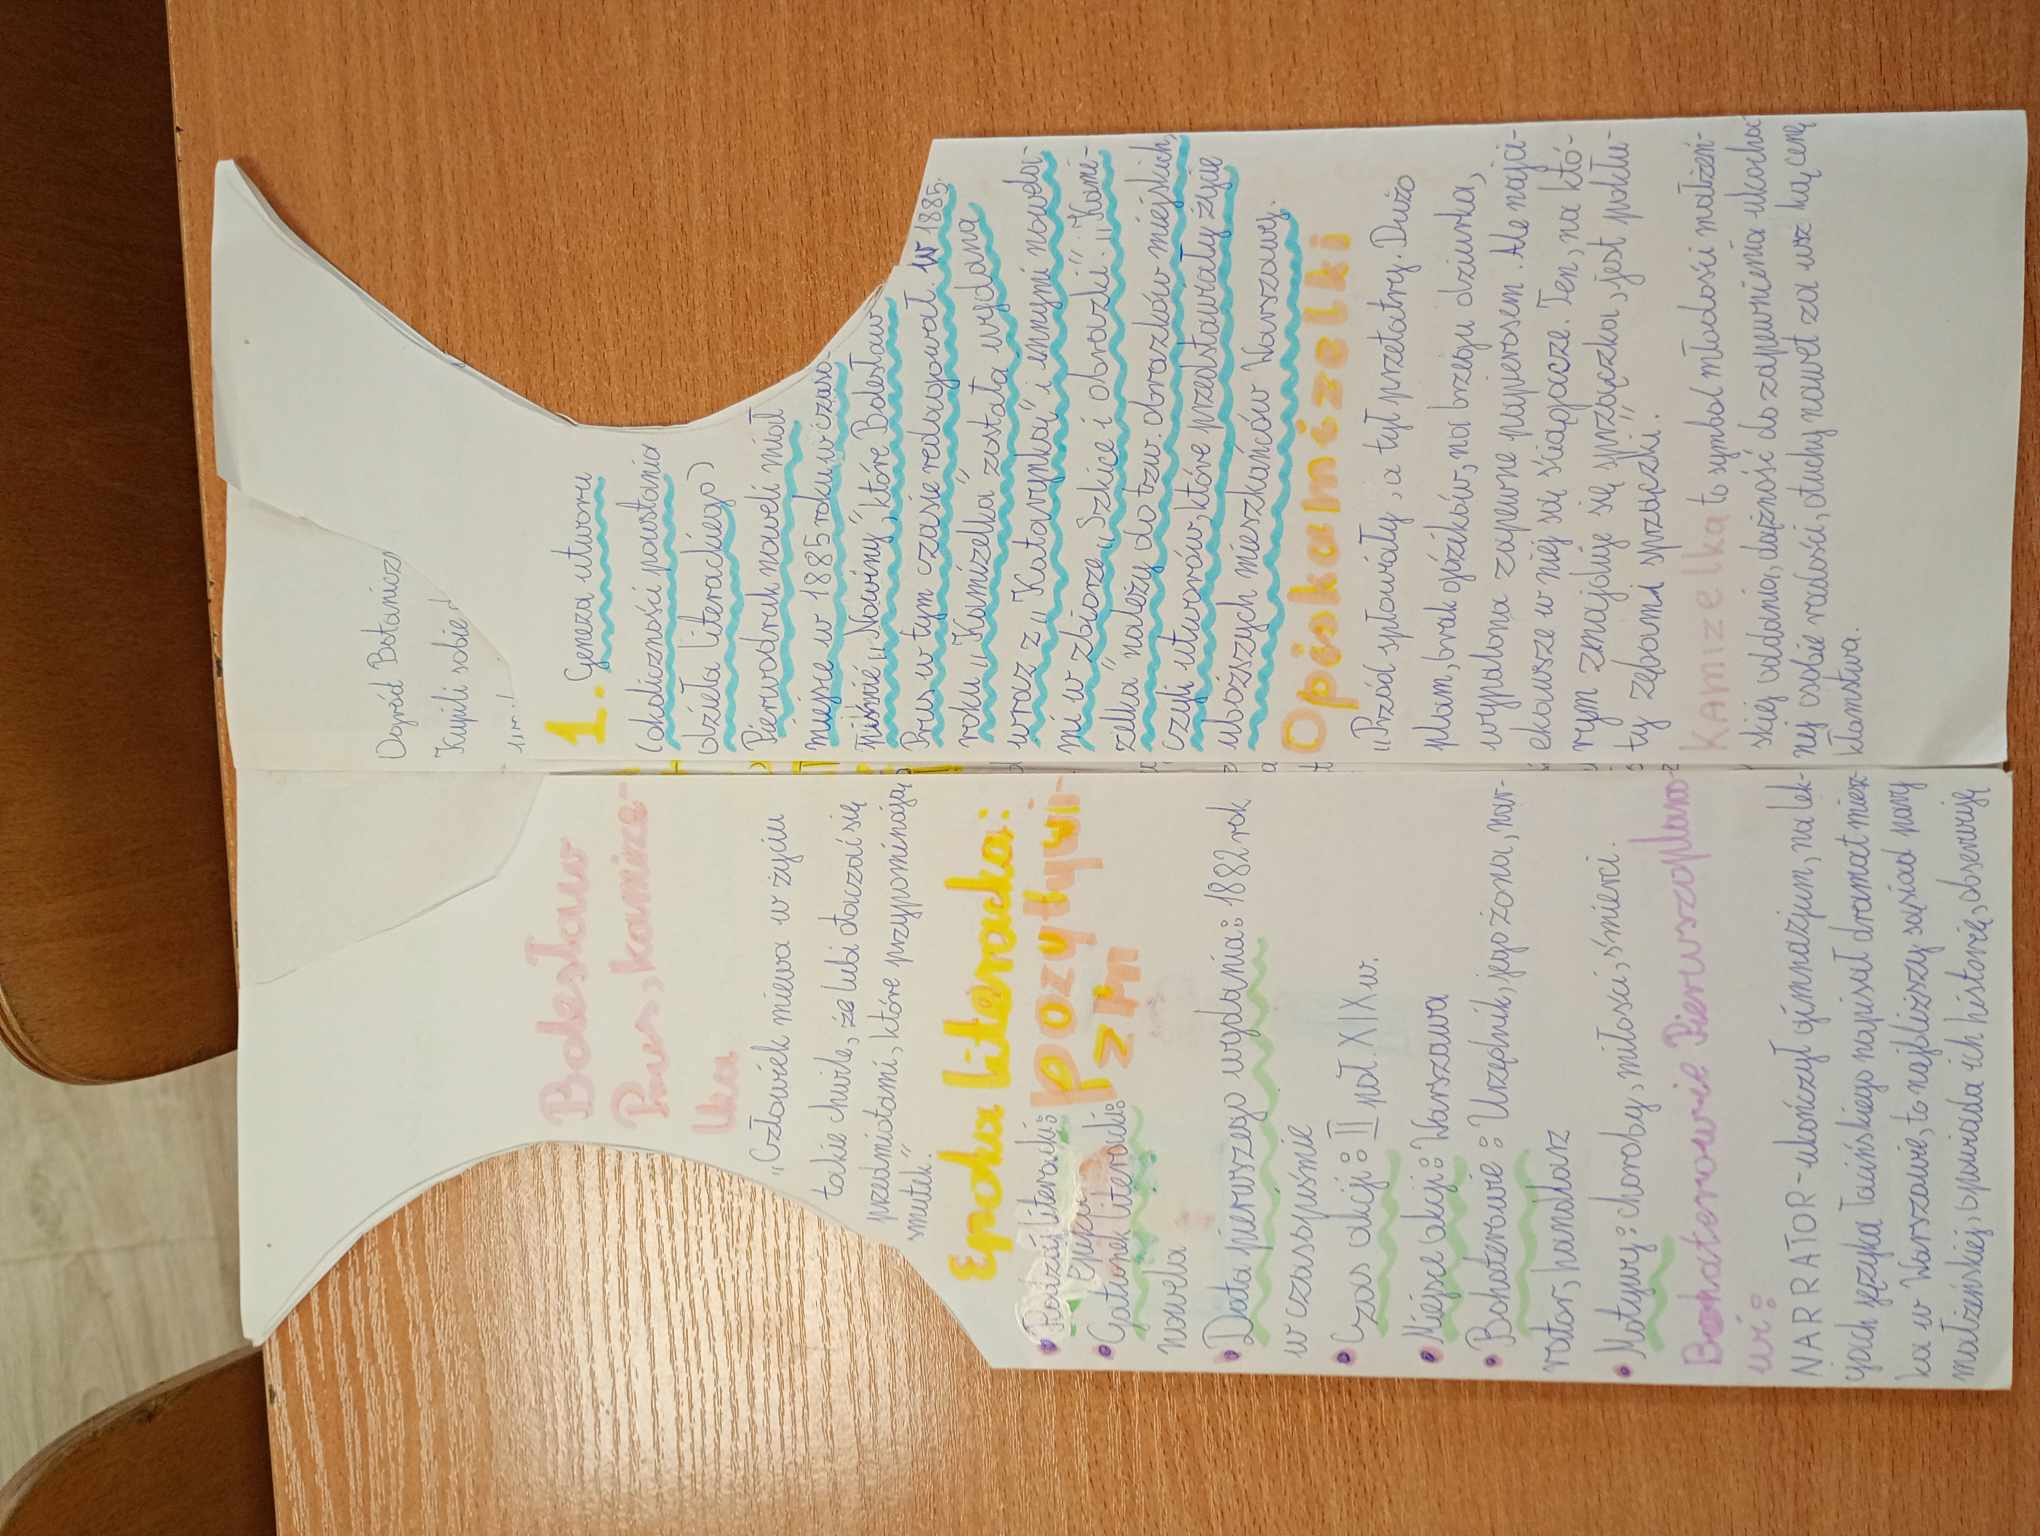 Bolesław
Prus, kamize-
lka
"Człowiek miewa w życiu
takie chwile, że lubi otaczać się
przedmiotami, które przypominają
smutek."
Epoka literacka:
pozytywi-
zm
• Rodzaj literacki:
Epika
• Gatunek literacki:
nowela
• Data pierwszego wydania: 1882 rok
w czasopiśmie
• Czas akcji: II poł. XIX w.
• Miejsce akcji: Warszawa
• Bohaterowie: Urzędnik, jego żona, nar-
rator, handlarz
• Motywy: choroby, miłości, śmierci.
Bohaterowie Pierwszoplano-
wi:
NARRATOR - ukończył gimnazjum, na lek-
cjach języka łacińskiego napisał dramat miesz-
ka w Warszawie, to najbliższy sąsiad pary
małżeńskiej, opowiada ich historię, obserwuje
Ogród Botanicz
Kupili sobie
1. Geneza utworu
(okoliczności powstania
dzieła literackiego)
Pierwodruk noweli miał
miejsce w 1885 roku w czaso-
piśmie „Nowiny", które Bolesław
Prus w tym czasie redagował. W 1885
roku „Kamizelka" została wydana
wraz z „Katarynką" i innymi nowela-
mi w zbiorze „Szkice i obrazki". „Kami-
zelka" należy do tzw. obrazków miejskich,
czyli utworów, które przedstawiały życie
uboższych mieszkańców Warszawy.
Opiskamizelki
„Przód spłowiały, a tył przetarty. Dużo
plam, brak guzików, na brzegu dziurka,
wypalona zapewne papierosem. Ale najci-
ekawsze w niej są ściągacze. Ten, na któ-
rym znajduje się sprzączka, jest pokłu-
ty zębami sprzączki."
Kamizelka to symbol młodości małżeń-
skiej oddania, dążność do zapewnienia ukocha
nej osobie radości, otuchy nawet za wsz ką cenę
kłamstwa.